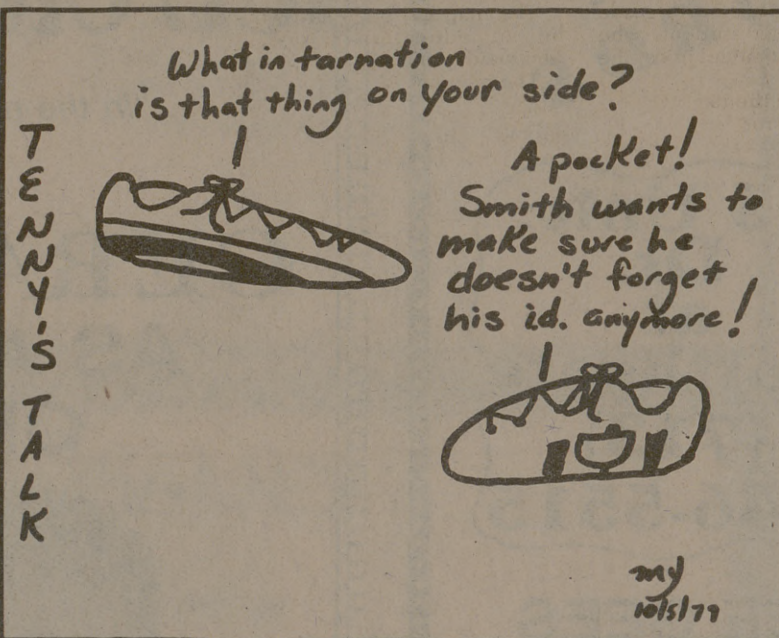 TENNY'S TALK
What in tarnation
is that thing on your side?
A pocket!
Smith wants to
make sure he
doesn't forget
his id. anymore!
my
10/5/79